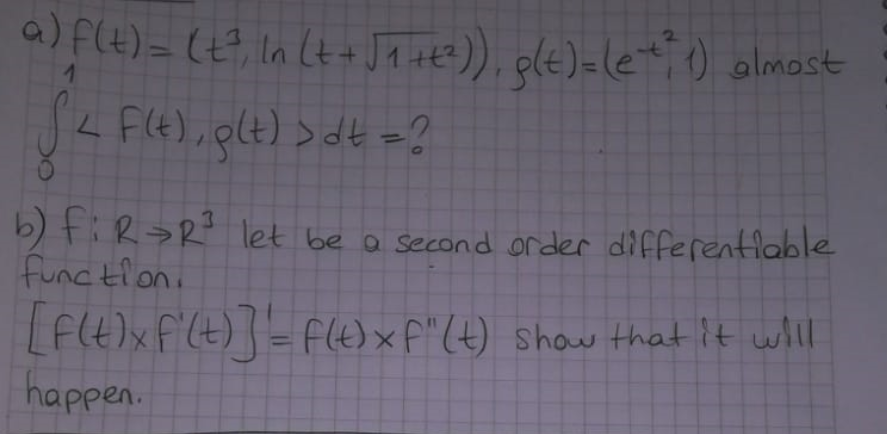 a) f(t) = (t³, ln (t + √1+t²)), g(t) = (e^-t², 1) almost
∫₀¹ < f(t), g(t) > dt = ?
b) f: R → R³ let be a second order differentiable
function.
[f(t) x f'(t)]' = f(t) x f''(t) show that it will
happen.